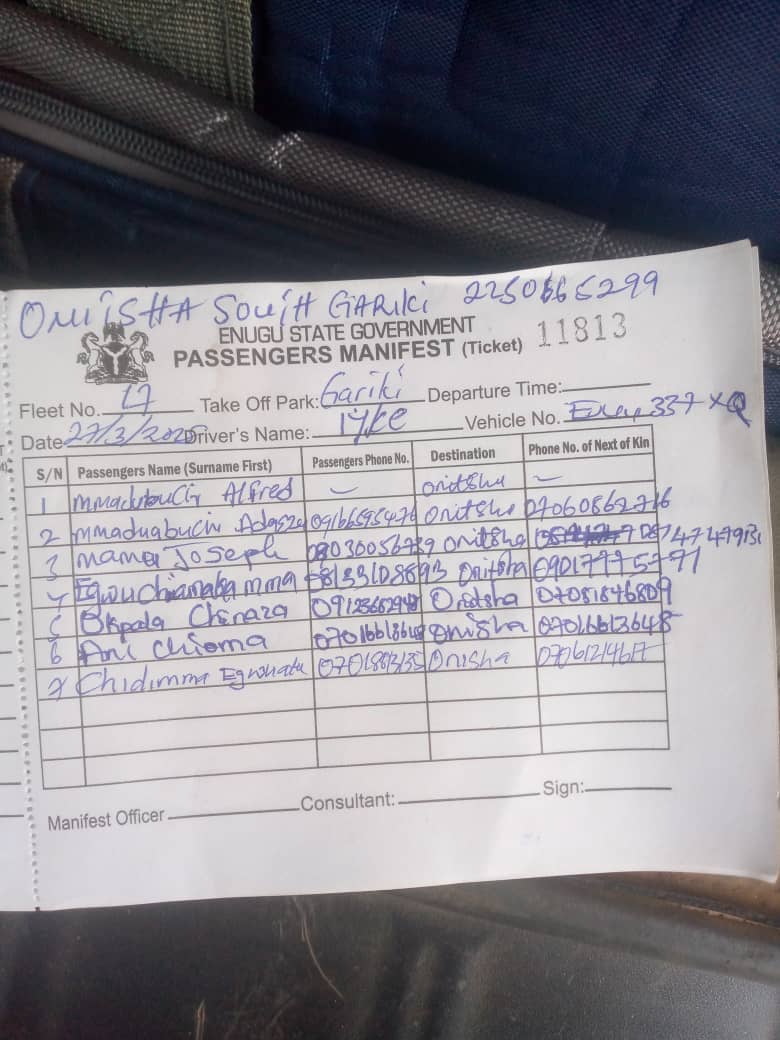 ONITSHA SOUTH GARIKI 2250665299
ENUGU STATE GOVERNMENT
PASSENGERS MANIFEST (Ticket) 11813
Fleet No. 17 Take Off Park: Gariki Departure Time:
Date 27/3/2025 Driver's Name: Iyke Vehicle No. 337 XQ
S/N Passengers Name (Surname First) Passengers Phone No. Destination Phone No. of Next of Kin
1 Mmadubuchi Alfred — Onitsha —
2 Mmaduabuchi 09166595476 Onitsha 07060862716
3 Mama Joseph 08030056989 Onitsha 08747479131
4 08133108693 Onitsha 09017775771
5 Okpala Chinaza 09123662948 Onitsha 07081846809
6 Ani Chioma Onisha 07016613648
7 Chidimma Onisha
Manifest Officer Consultant: Sign: